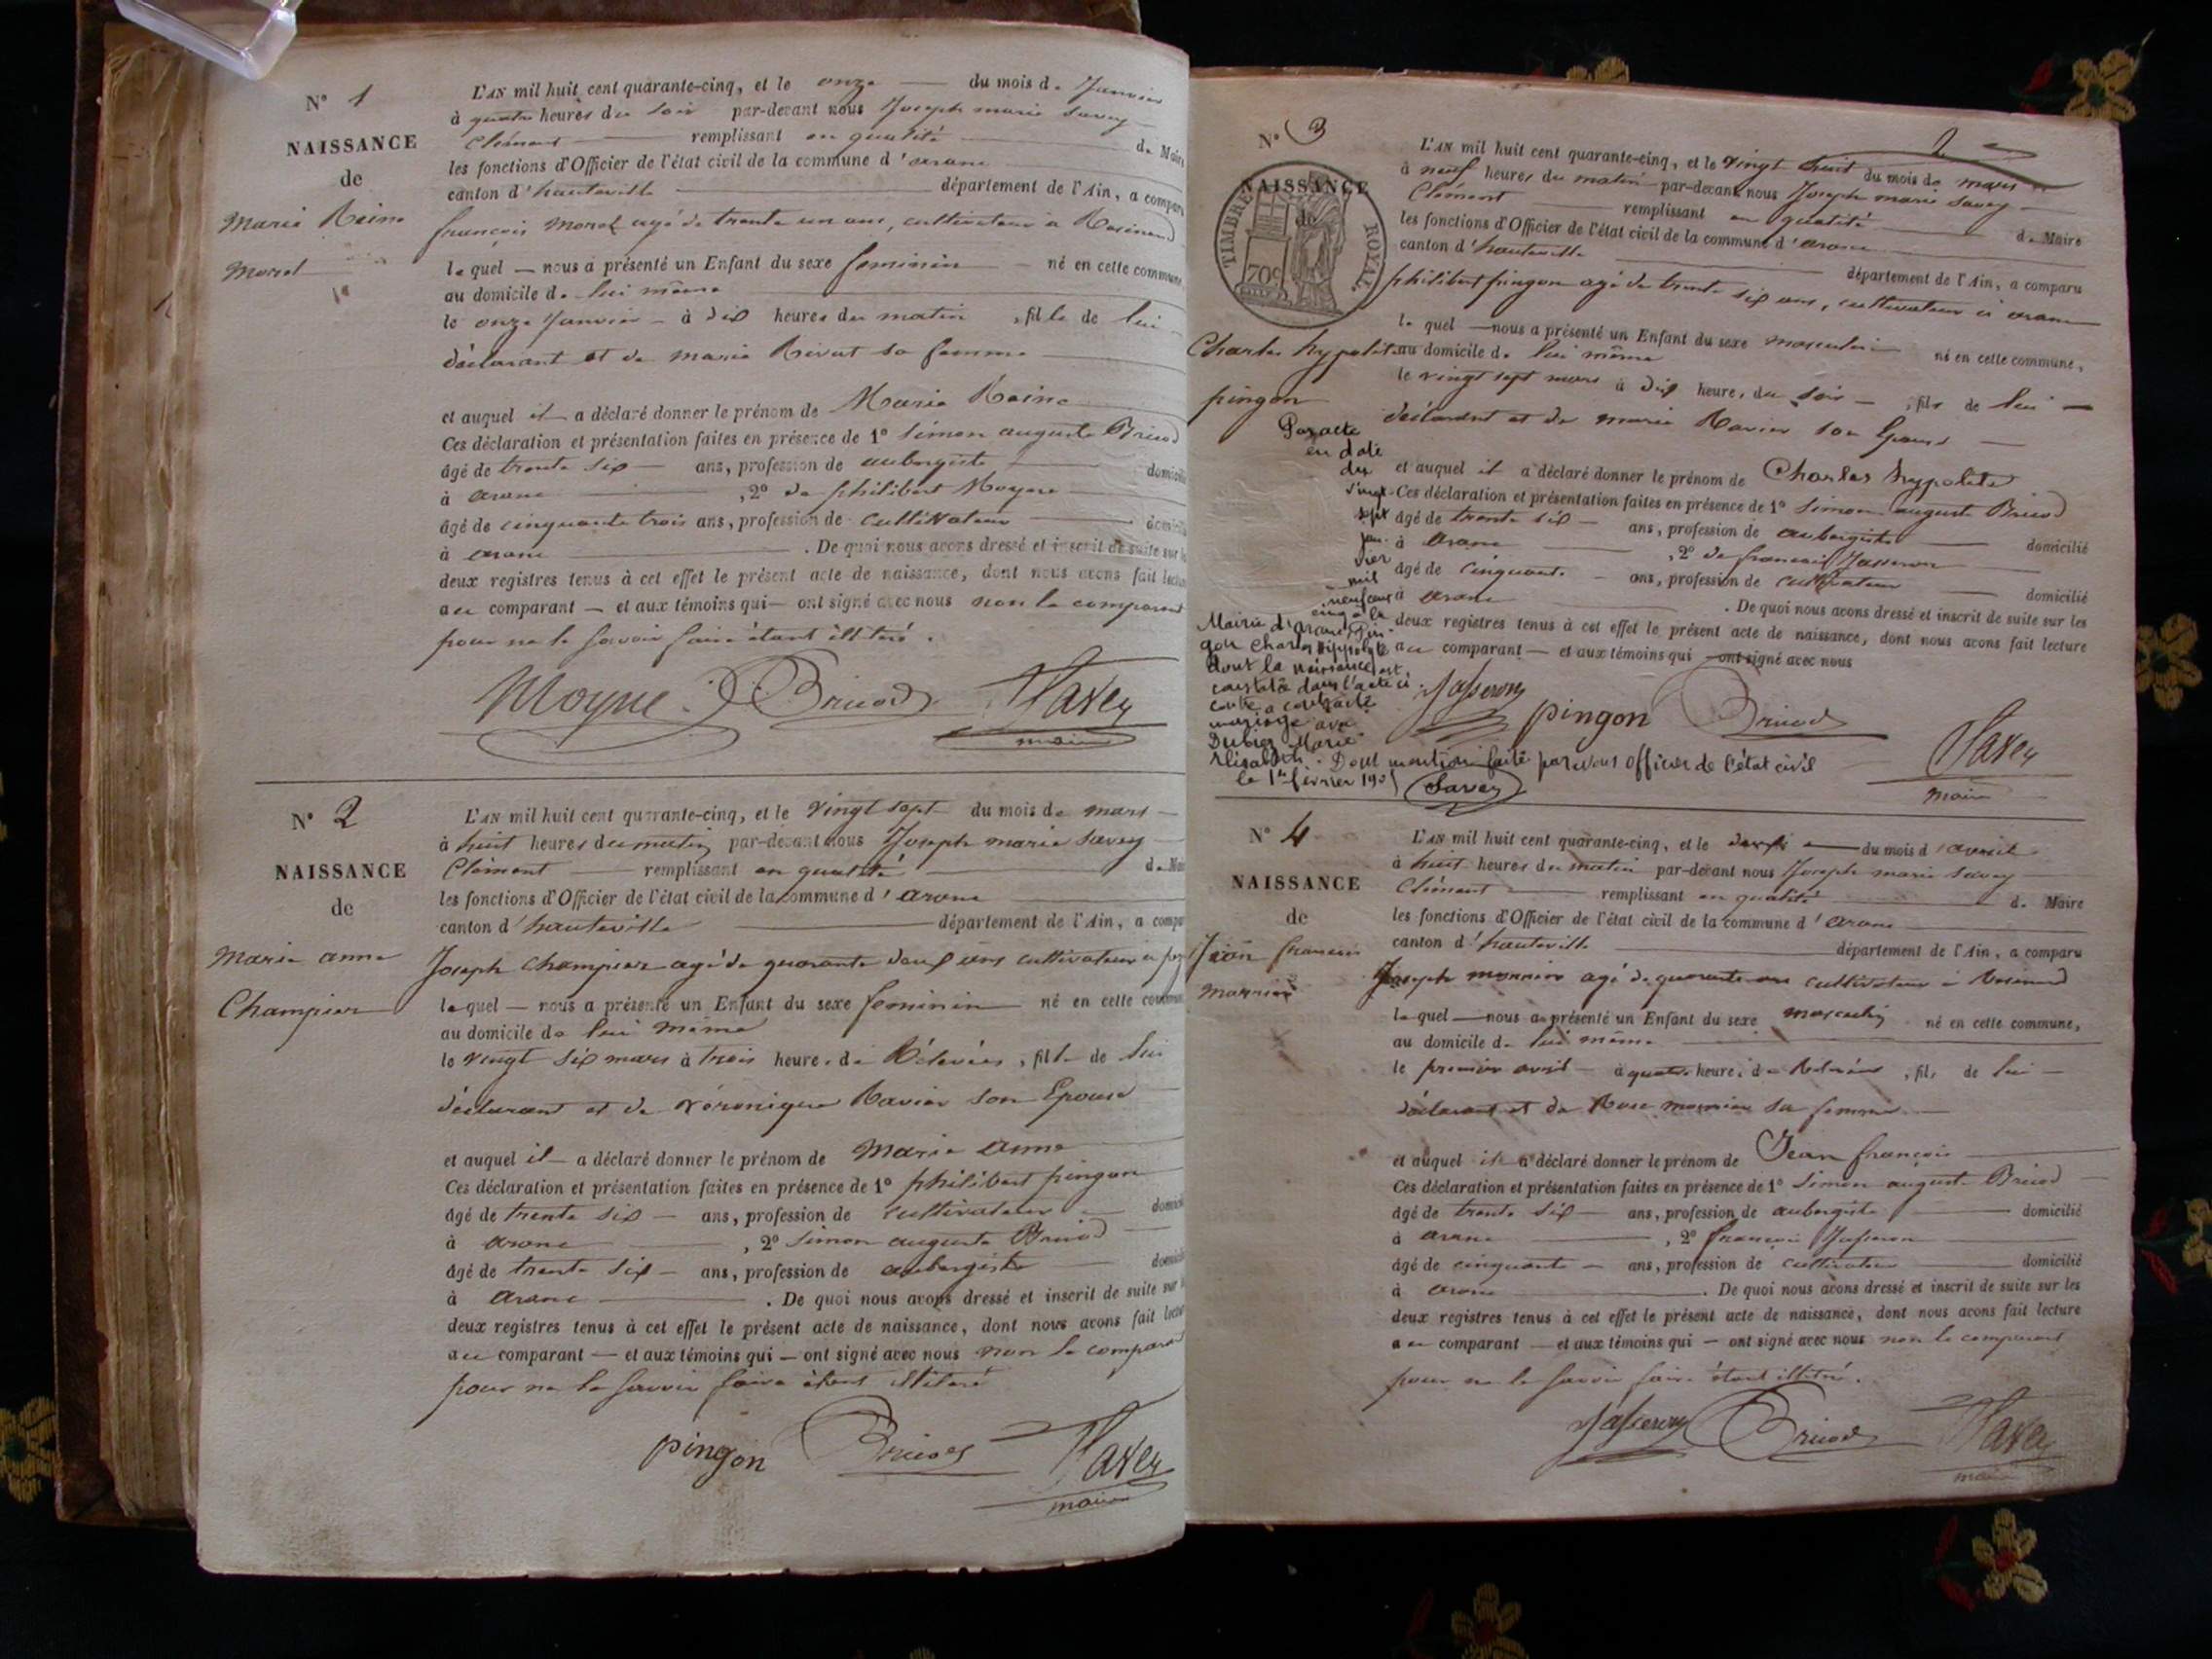 N° 1
NAISSANCE
de
Marie Reine
Morel
L'AN mil huit cent quarante-cinq, et le onze du mois de Janvier
à quatre heures du soir par-devant nous Joseph marie Savey
Clément remplissant en qualité de Maire
les fonctions d'Officier de l'état civil de la commune d'arane
canton d'hauteville département de l'Ain, a comparu
françois Morel agé de trente un ans, cultivateur à Rosinand
lequel — nous a présenté un Enfant du sexe feminin — né en cette commune
au domicile de lui même
le onze Janvier à dix heures du matin, fille de lui
déclarant et de marie Rivat sa femme
et auquel il a déclaré donner le prénom de Marie Reine
Ces déclaration et présentation faites en présence de 1° Simon auguste Bricod
âgé de trente six — ans, profession de aubergiste domicilié
à arane, 2° de philibert Moyne
âgé de cinquante trois ans, profession de cultivateur domicilié
à arane. De quoi nous avons dressé et inscrit de suite sur les
deux registres tenus à cet effet le présent acte de naissance, dont nous avons fait lecture
au comparant — et aux témoins qui — ont signé avec nous non le comparant
pour ne le savoir faire étant illitéré.
Moyne Bricod Savey
maire
N° 2
NAISSANCE
de
Marie anne
Champier
L'AN mil huit cent quarante-cinq, et le vingt sept du mois de mars
à huit heures du matin par-devant nous Joseph marie Savey
Clément remplissant en qualité de Maire
les fonctions d'Officier de l'état civil de la commune d'arane
canton d'hauteville département de l'Ain, a comparu
Joseph Champier agé de quarante deux ans cultivateur à
lequel — nous a présenté un Enfant du sexe feminin né en cette commune
au domicile de lui même
le vingt six mars à trois heures de Rélevées, fille de lui
déclarant et de véronique Ravier son Epouse
et auquel il a déclaré donner le prénom de Marie anne
Ces déclaration et présentation faites en présence de 1° philibert pingon
âgé de trente six — ans, profession de cultivateur domicilié
à arane, 2° Simon auguste Bricod
âgé de trente six — ans, profession de aubergiste domicilié
à arane. De quoi nous avons dressé et inscrit de suite sur les
deux registres tenus à cet effet le présent acte de naissance, dont nous avons fait lecture
au comparant — et aux témoins qui — ont signé avec nous non le comparant
pour ne le savoir faire étant illitéré
pingon Bricod Savey
maire
2
N° 3
NAISSANCE
de
TIMBRE ROYAL
70c
Charles hypolite
pingon
L'AN mil huit cent quarante-cinq, et le vingt huit du mois de mars
à neuf heures du matin par-devant nous Joseph marie Savey
Clément remplissant en qualité de Maire
les fonctions d'Officier de l'état civil de la commune d'arane
canton d'hauteville département de l'Ain, a comparu
philibert pingon agé de trente six ans, cultivateur à arane
lequel — nous a présenté un Enfant du sexe masculin né en cette commune,
au domicile de lui même
le vingt sept mars à dix heures du soir —, fils de lui —
déclarant et de marie Ravier son Epouse
et auquel il a déclaré donner le prénom de Charles hypolite
Ces déclaration et présentation faites en présence de 1° Simon auguste Bricod
âgé de trente six — ans, profession de aubergiste domicilié
à arane, 2° de francois Jasseron
âgé de cinquante — ans, profession de cultivateur domicilié
à arane. De quoi nous avons dressé et inscrit de suite sur les
deux registres tenus à cet effet le présent acte de naissance, dont nous avons fait lecture
au comparant — et aux témoins qui ont signé avec nous
Jasseron pingon Bricod Savey
maire
Par acte
en date
du
vingt-
sept
jan-
vier
mil
neuf cent
cinq à la
Mairie d'Aranc Pin-
gon Charles Hippolyte
dont la naissance est
constatée dans l'acte ci
contre a contracté
mariage avec
Dubiez Marie
Elisabeth. Dont mention faite par nous officier de l'état civil
le 1er février 1905 Savey
N° 4
NAISSANCE
de
Jean francois
Monnier
L'AN mil huit cent quarante-cinq, et le deux du mois d'avril
à huit heures du matin par-devant nous Joseph marie Savey
Clément remplissant en qualité de Maire
les fonctions d'Officier de l'état civil de la commune d'arane
canton d'hauteville département de l'Ain, a comparu
Joseph monnier agé de quarante ans cultivateur à Rosinand
lequel — nous a présenté un Enfant du sexe masculin né en cette commune,
au domicile de lui même
le premier avril à quatre heures de Relevées, fils de lui —
déclarant et de Rose monnier sa femme
et auquel il a déclaré donner le prénom de Jean françois
Ces déclaration et présentation faites en présence de 1° Simon auguste Bricod
âgé de trente six — ans, profession de aubergiste domicilié
à arane, 2° francois Jasseron
âgé de cinquante — ans, profession de cultivateur domicilié
à arane. De quoi nous avons dressé et inscrit de suite sur les
deux registres tenus à cet effet le présent acte de naissance, dont nous avons fait lecture
au comparant — et aux témoins qui — ont signé avec nous non le comparant
pour ne le savoir faire étant illitéré.
Jasseron Bricod Savey
maire